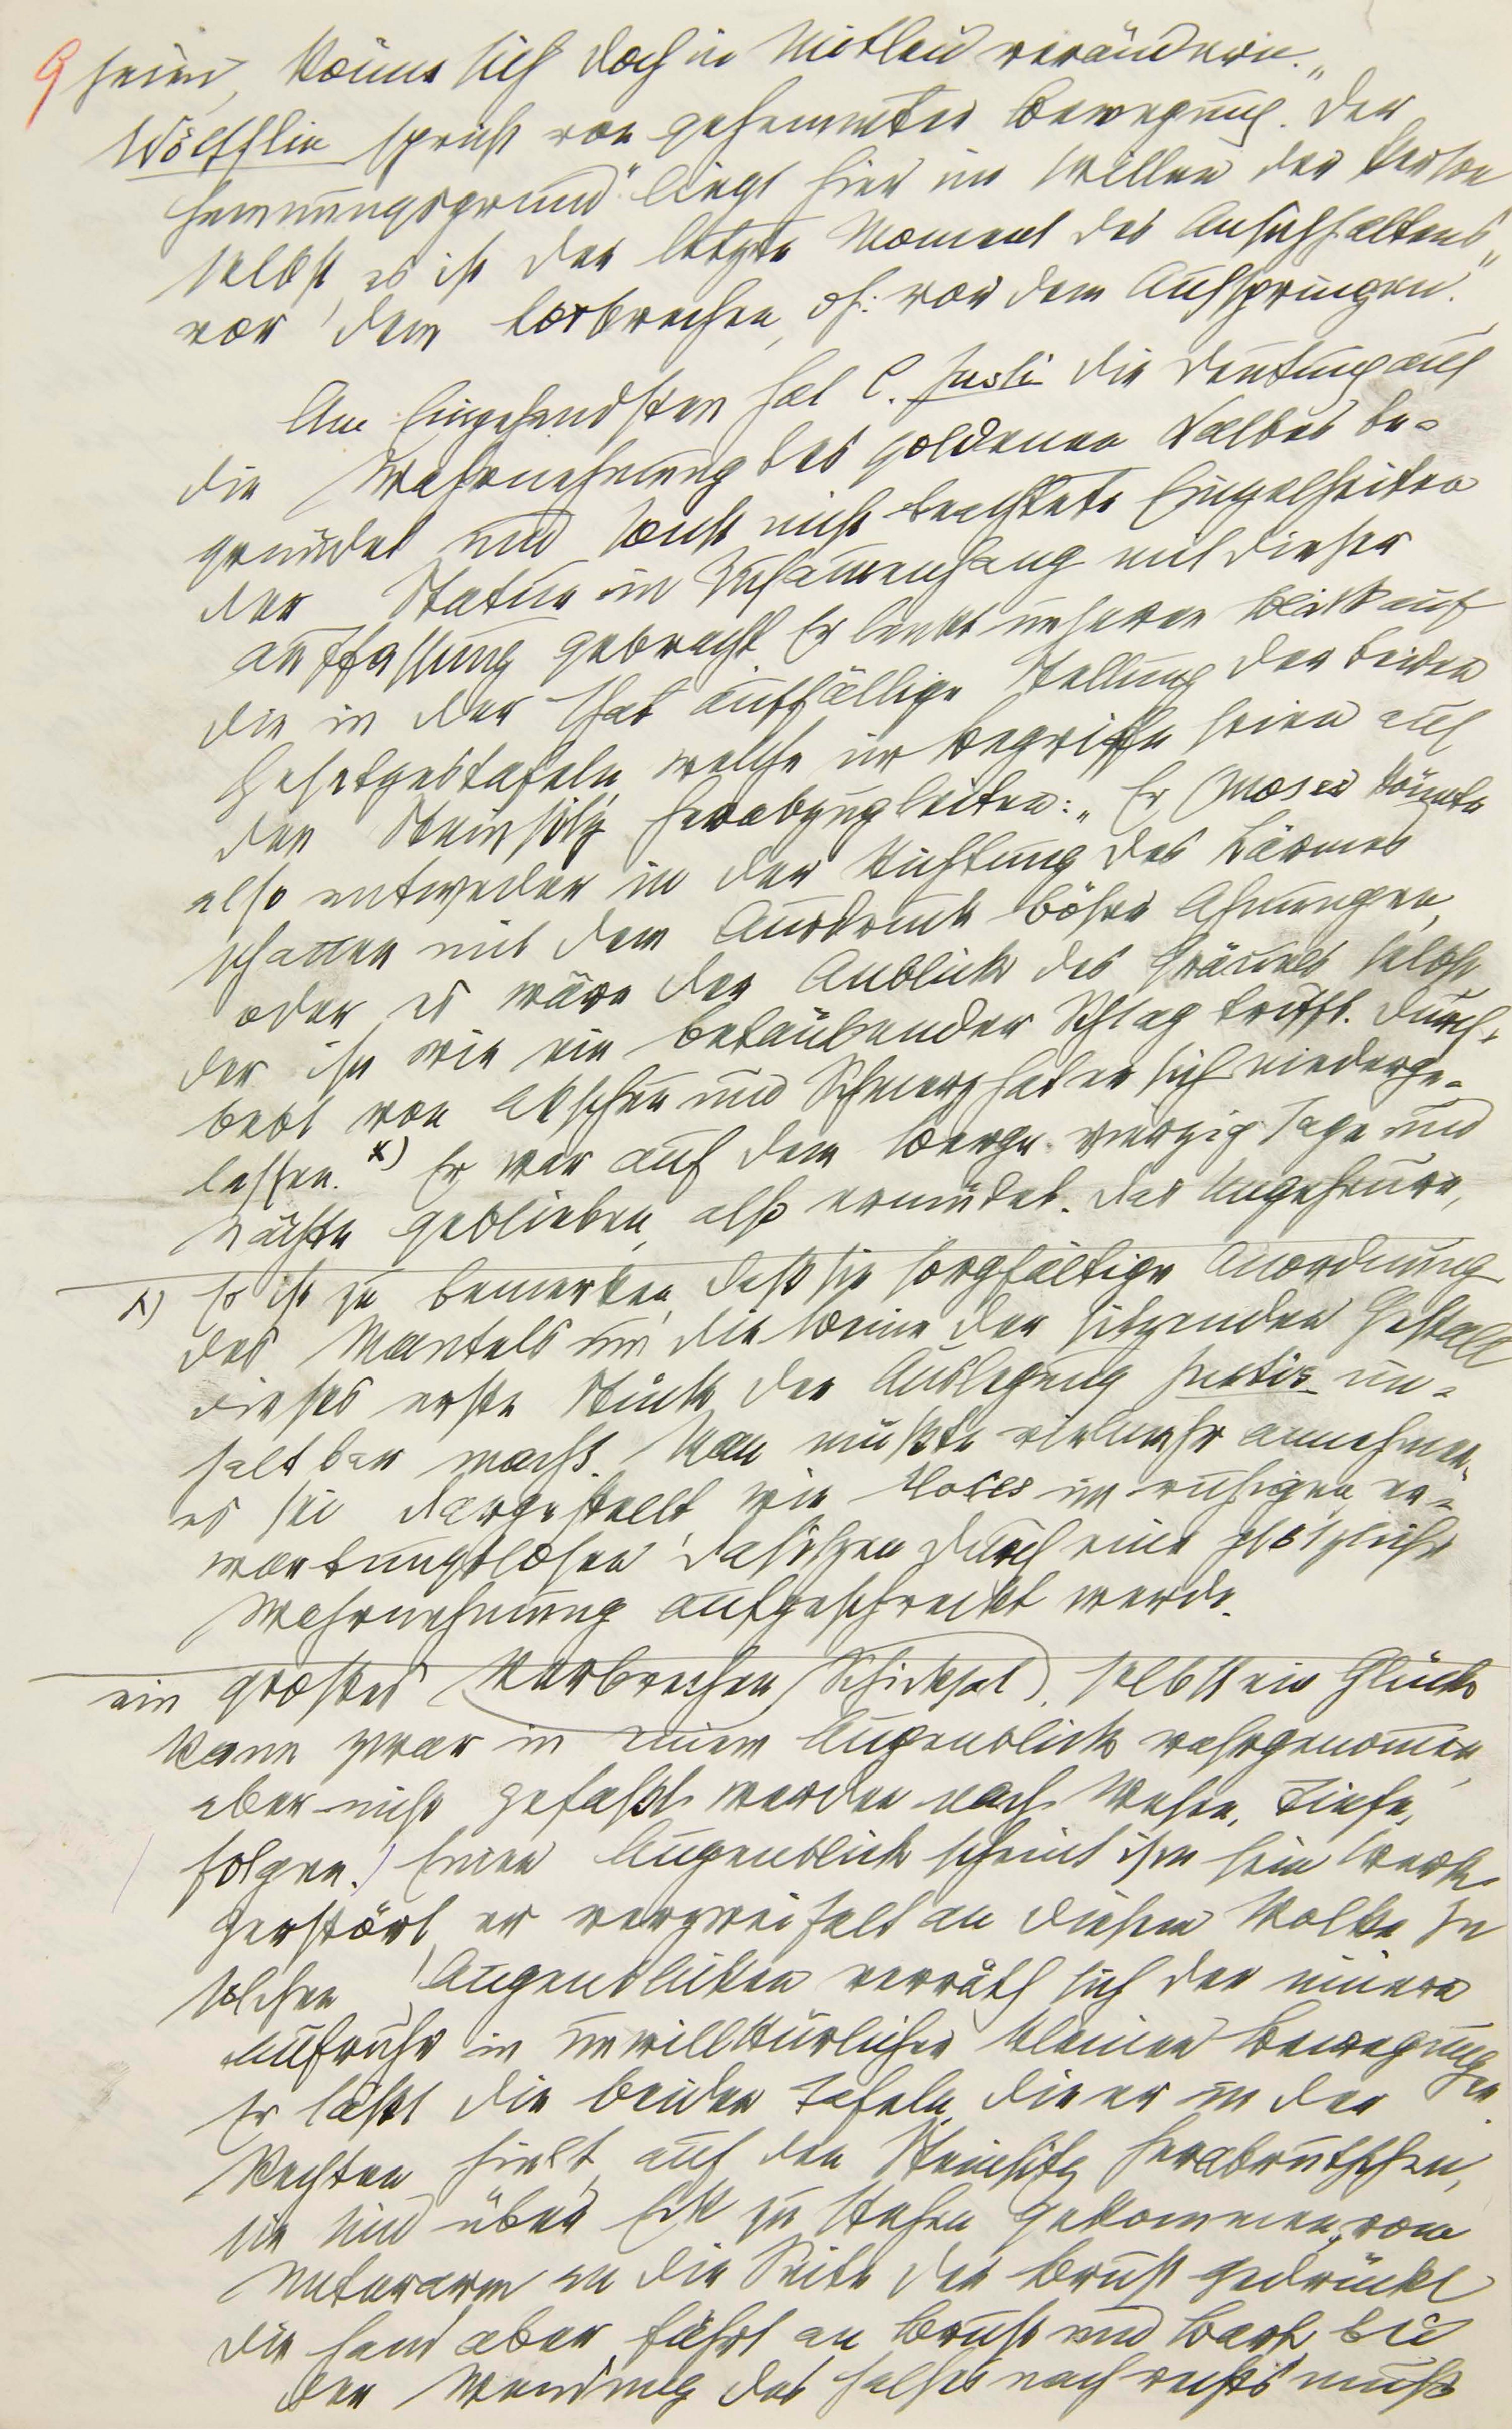 9 heim, könne sich doch in Mitleid verändern."
Wölfflin spricht von gehemmter Bewegung. Der
Hemmungsgrund" liegt hier im Willen der Person
selbst, es ist der letzte Moment des Ansichhaltens
vor dem Losbrechen, dh: vor dem Aufspringen."
Am Eingehendsten hat C. Justi die Deutung auf
die Wahrnehmung des goldenen Kalbes be-
gründet und sonst nicht beachtete Einzelheiten
der Statue in Zusammenhang mit dieser
Auffassung gebracht. Er lenkt unseren Blick auf
die in der That auffällige Stellung der beiden
Gesetzestafeln, welche im Begriffe seien auf
den Steinsitz herabzugleiten: „Er (Moses) könnte
also entweder in der Richtung des Lärmes
schauen mit dem Ausdruck böser Ahnungen,
oder es wäre der Anblick des Gräuels selbst
der ihn wie ein betäubender Schlag trifft. Durch-
bebt von Abscheu und Schmerz hat er sich niederge-
lassen. x) Er war auf dem Berge vierzig Tage und
Nächte geblieben, also ermüdet. Das Ungeheure,
x) Es ist zu bemerken, daß die sorgfältige Anordnung
des Mantels um die Beine der sitzenden Gestalt
dieses erste Stück der Auslegung Justis un-
haltbar macht. Man müßte vielmehr annehmen,
es sei dargestellt, wie Moses im ruhigen er-
wartungslosen Dasitzen durch eine plötzliche
Wahrnehmung aufgeschreckt werde.
ein großes Verbrechen (Schicksal), selbst ein Glück
kann zwar in einem Augenblick wahrgenommen,
aber nicht gefaßt werden nach Wesen, Tiefe,
Folgen. Einen Augenblick scheint ihm sein Werk
zerstört, er verzweifelt an diesem Volke. In
solchen Augenblicken verräth sich der innere
Aufruhr in unwillkürlichen kleinen Bewegungen.
Er läßt die beiden Tafeln, die er in der
Rechten hielt, auf den Steinsitz herabrutschen,
sie sind über Eck zu stehen gekommen, vom
Unterarm an die Seite der Brust gedrückt.
Die Hand aber fährt an Brust und Bart, bei
der Wendung des Halses nach rechts muß